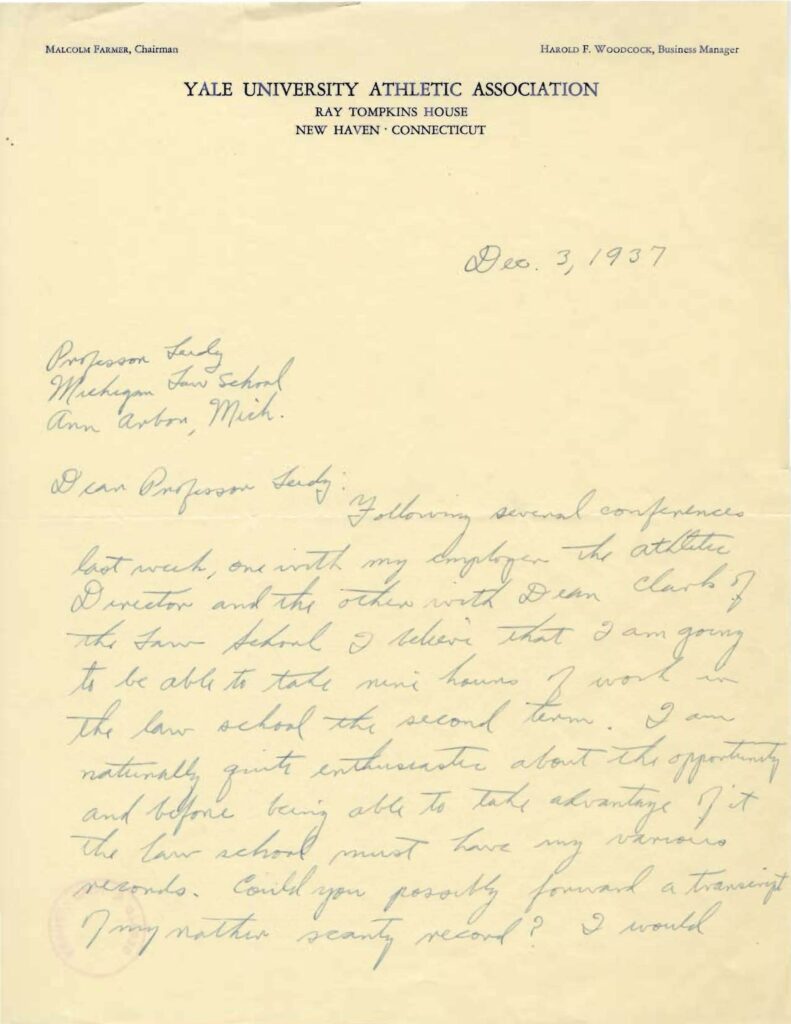 MALCOLM FARMER, Chairman
HAROLD F. WOODCOCK, Business Manager
YALE UNIVERSITY ATHLETIC ASSOCIATION
RAY TOMPKINS HOUSE
NEW HAVEN · CONNECTICUT
Dec. 3, 1937
Professor Leidy
Michigan Law School
Ann Arbor, Mich.
Dear Professor Leidy:
Following several conferences
last week, one with my employer the athletic
Director and the other with Dean Clark of
the Law School I believe that I am going
to be able to take nine hours of work in
the law school the second term. I am
naturally quite enthusiastic about the opportunity
and before being able to take advantage of it
the law school must have my various
records. Could you possibly forward a transcript
of my rather scanty record? I would